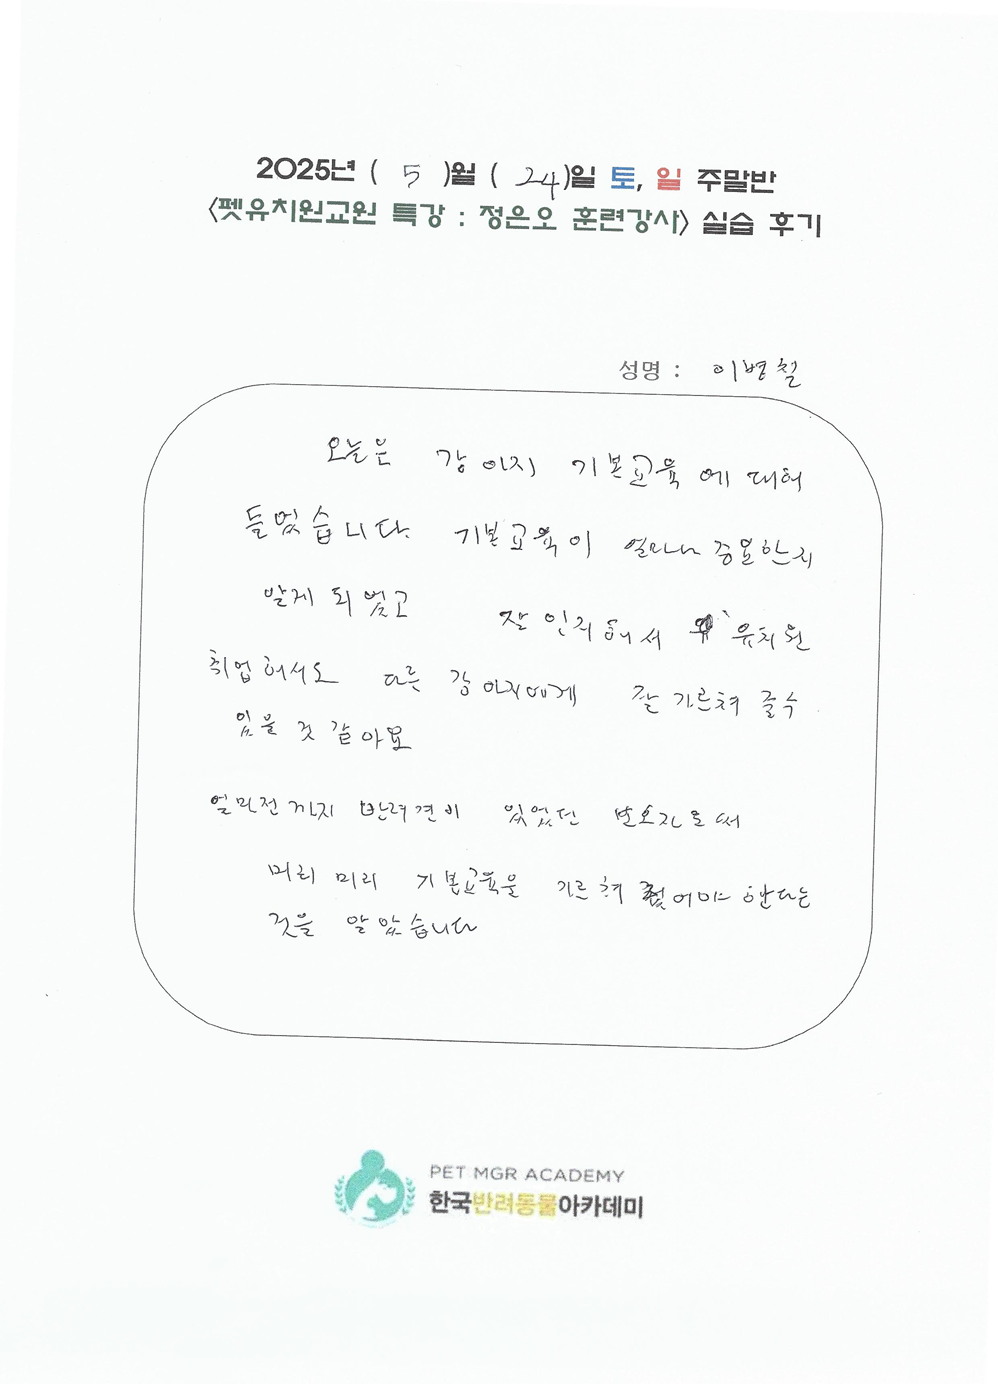 2025년 ( 5 )월 ( 24 )일 토, 일 주말반
<펫유치원교원 특강 : 정은오 훈련강사> 실습 후기
성명 : 이병칠
오늘은 강아지 기본교육에 대해
들었습니다. 기본교육이 얼마나 중요한지
알게 되었고 잘 인지해서 유치원
취업해서도 다른 강아지에게 잘 가르쳐 줄수
있을 것 같아요
얼마전까지 반려견이 있었던 보호자로써
미리 미리 기본교육을 가르쳐 줬어야 한다는
것을 알았습니다
PET MGR ACADEMY
한국반려동물아카데미